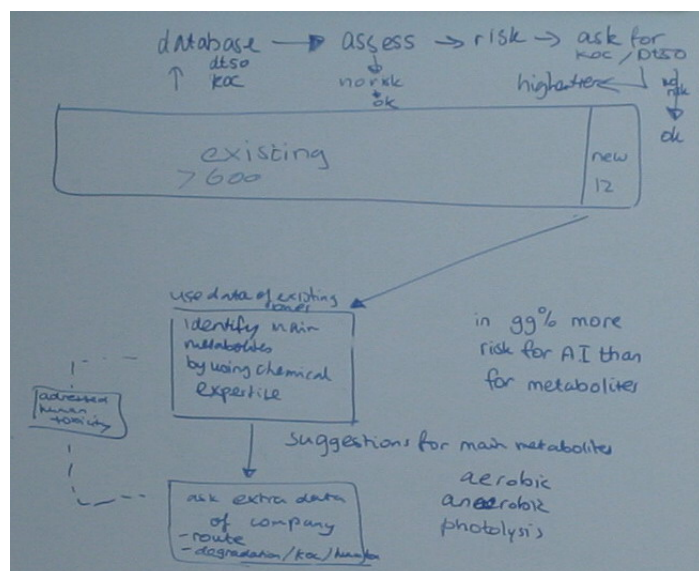 database → assess → risk → ask for
dt50
koc
koc / DT50
no risk
ok
higher tier
no
risk
ok
existing
> 600
new
12
use data of existing
ones
identify main
metabolites
by using chemical
expertise
in 99% more
risk for A.I than
for metabolites
adressed
human
toxicity
suggestions for main metabolites
aerobic
anaerobic
photolysis
ask extra data
of company
- route
- degradation / koc /